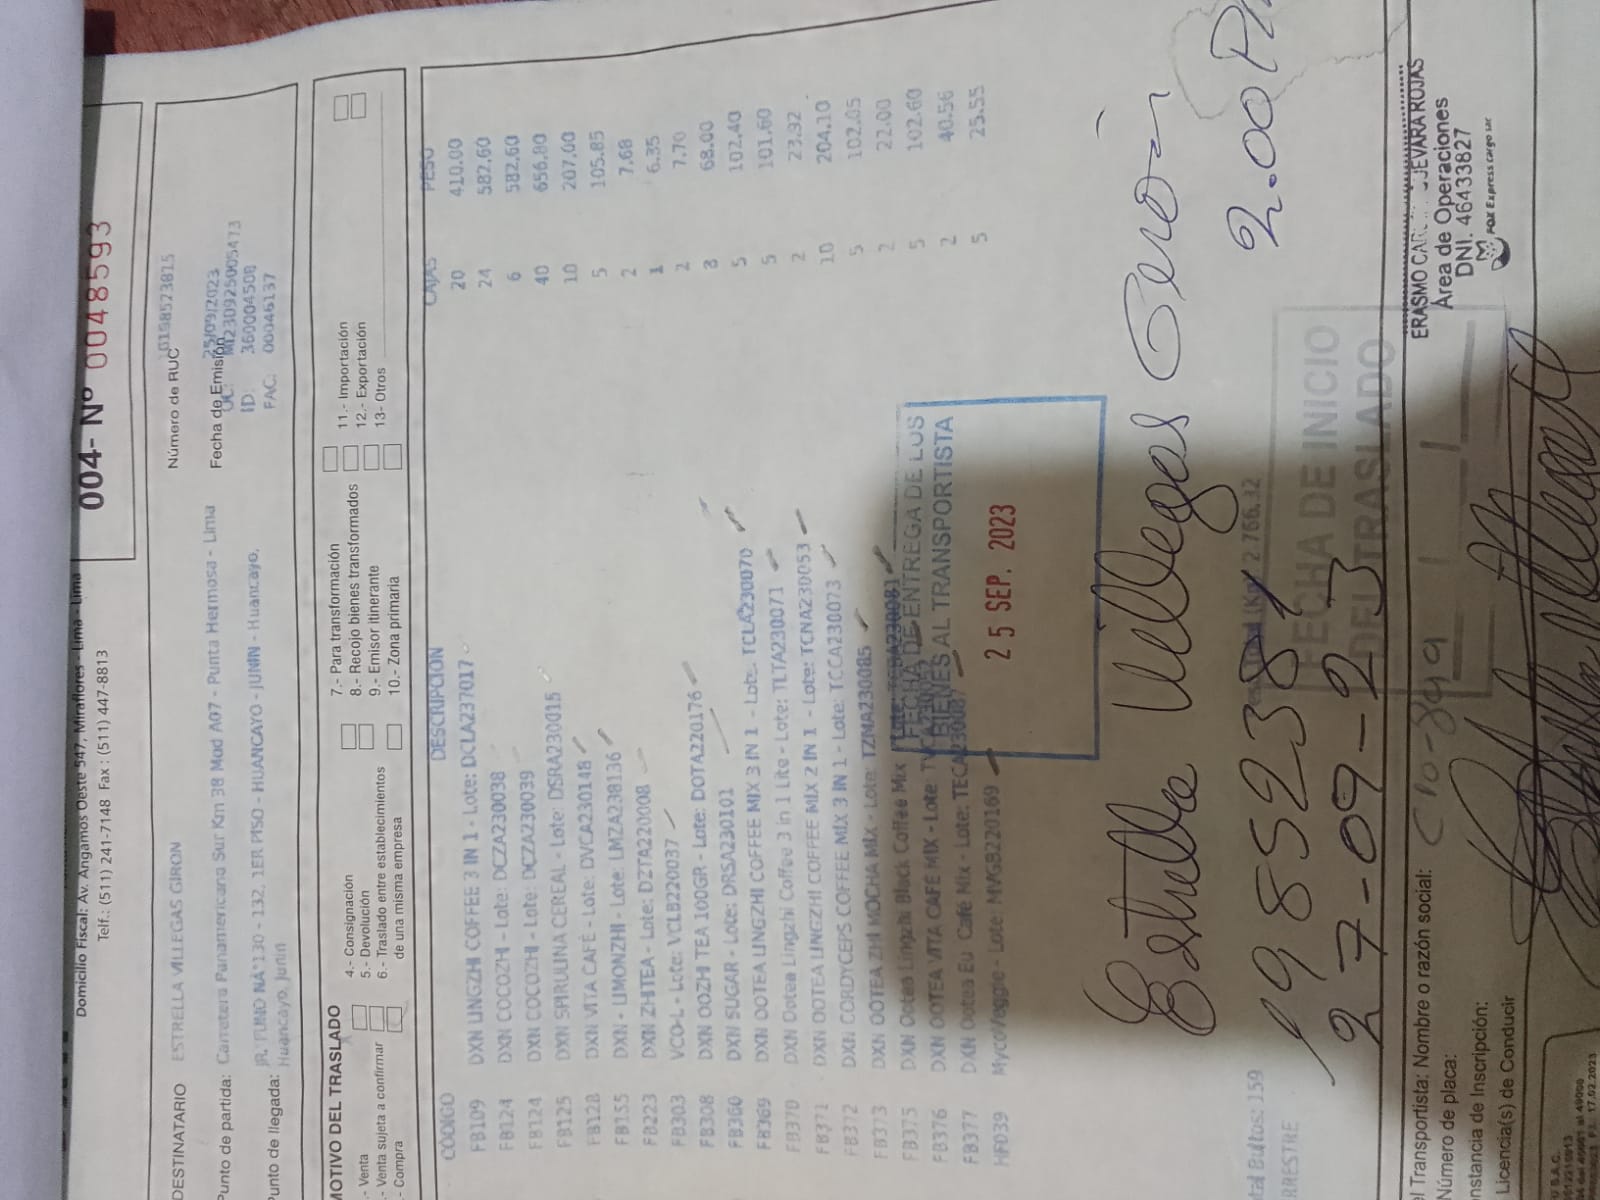 Domicilio Fiscal: Av. Angamos Oeste 547, Miraflores - Lima - Lima
Telf.: (511) 241-7148 Fax : (511) 447-8813
004- Nº 0048593
DESTINATARIO ESTRELLA VILLEGAS GIRON
Número de RUC
Punto de partida: Carretera Panamericana Sur Km 38 Mod A07 - Punta Hermosa - Lima
Fecha de Emisión 25/09/2023
OC: MI230925005473
Punto de llegada: JR. PUNO NÂ°130 - 132, 1ER PISO - HUANCAYO - JUNIN - Huancayo,
Huancayo, Junin
ID: 360004508
FAC: 00046137
MOTIVO DEL TRASLADO
.- Venta
.- Venta sujeta a confirmar
.- Compra
4.- Consignación
5.- Devolución
6.- Traslado entre establecimientos
de una misma empresa
7.- Para transformación
8.- Recojo bienes transformados
9.- Emisor itinerante
10.- Zona primaria
11.- Importación
12.- Exportación
13- Otros
CODIGO DESCRIPCION CAJAS PESO
FB109 DXN LINGZHI COFFEE 3 IN 1 - Lote: DCLA237017 20 410.00
FB124 DXN COCOZHI - Lote: DCZA230038 24 582.60
FB124 DXN COCOZHI - Lote: DCZA230039 6 582.60
FB125 DXN SPIRULINA CEREAL - Lote: DSRA230015 40 656.80
FB128 DXN VITA CAFÉ - Lote: DVCA230148 10 207.00
FB155 DXN - LIMONZHI - Lote: LMZA238136 5 105.85
FB223 DXN ZHITEA - Lote: DZTA220008 2 7.68
FB303 VCO-L - Lote: VCLB220037 1 6.35
FB308 DXN OOZHI TEA 10GR - Lote: DOTA220176 2 7.70
FB360 DXN SUGAR - Lote: DRSA230101 8 68.00
FB369 DXN OOTEA LINGZHI COFFEE MIX 3 IN 1 - Lote: TCLA230070 5 102.40
FB370 DXN Ootea Lingzhi Coffee 3 in 1 Lite - Lote: TLTA230071 5 101.60
FB371 DXN OOTEA LINGZHI COFFEE MIX 2 IN 1 - Lote: TCNA230053 2 23.92
FB372 DXN CORDYCEPS COFFEE MIX 3 IN 1 - Lote: TCCA230073 10 204.10
FB373 DXN OOTEA ZHI MOCHA MIX - Lote: TZMA230085 5 102.05
FB375 DXN Ootea Lingzhi Black Coffee Mix 2 22.00
FB376 DXN OOTEA VITA CAFÉ MIX - Lote: 5 102.60
FB377 DXN Ootea Eu Café Mix - Lote: 2 40.56
HF039 MycoVeggie - Lote: MVGB220169 5 25.55
FECHA DE ENTREGA DE LOS
BIENES AL TRANSPORTISTA
25 SEP. 2023
Estrella Villegas Giron
2.00
27-09-23
tal Bultos: 159
2.766.32
RRESTRE
FECHA DE INICIO
DEL TRASLADO
el Transportista: Nombre o razón social:
Número de placa:
nstancia de Inscripción:
Licencia(s) de Conducir
ERASMO
Área de Operaciones
DNI. 46433827
FOX Express cargo sac